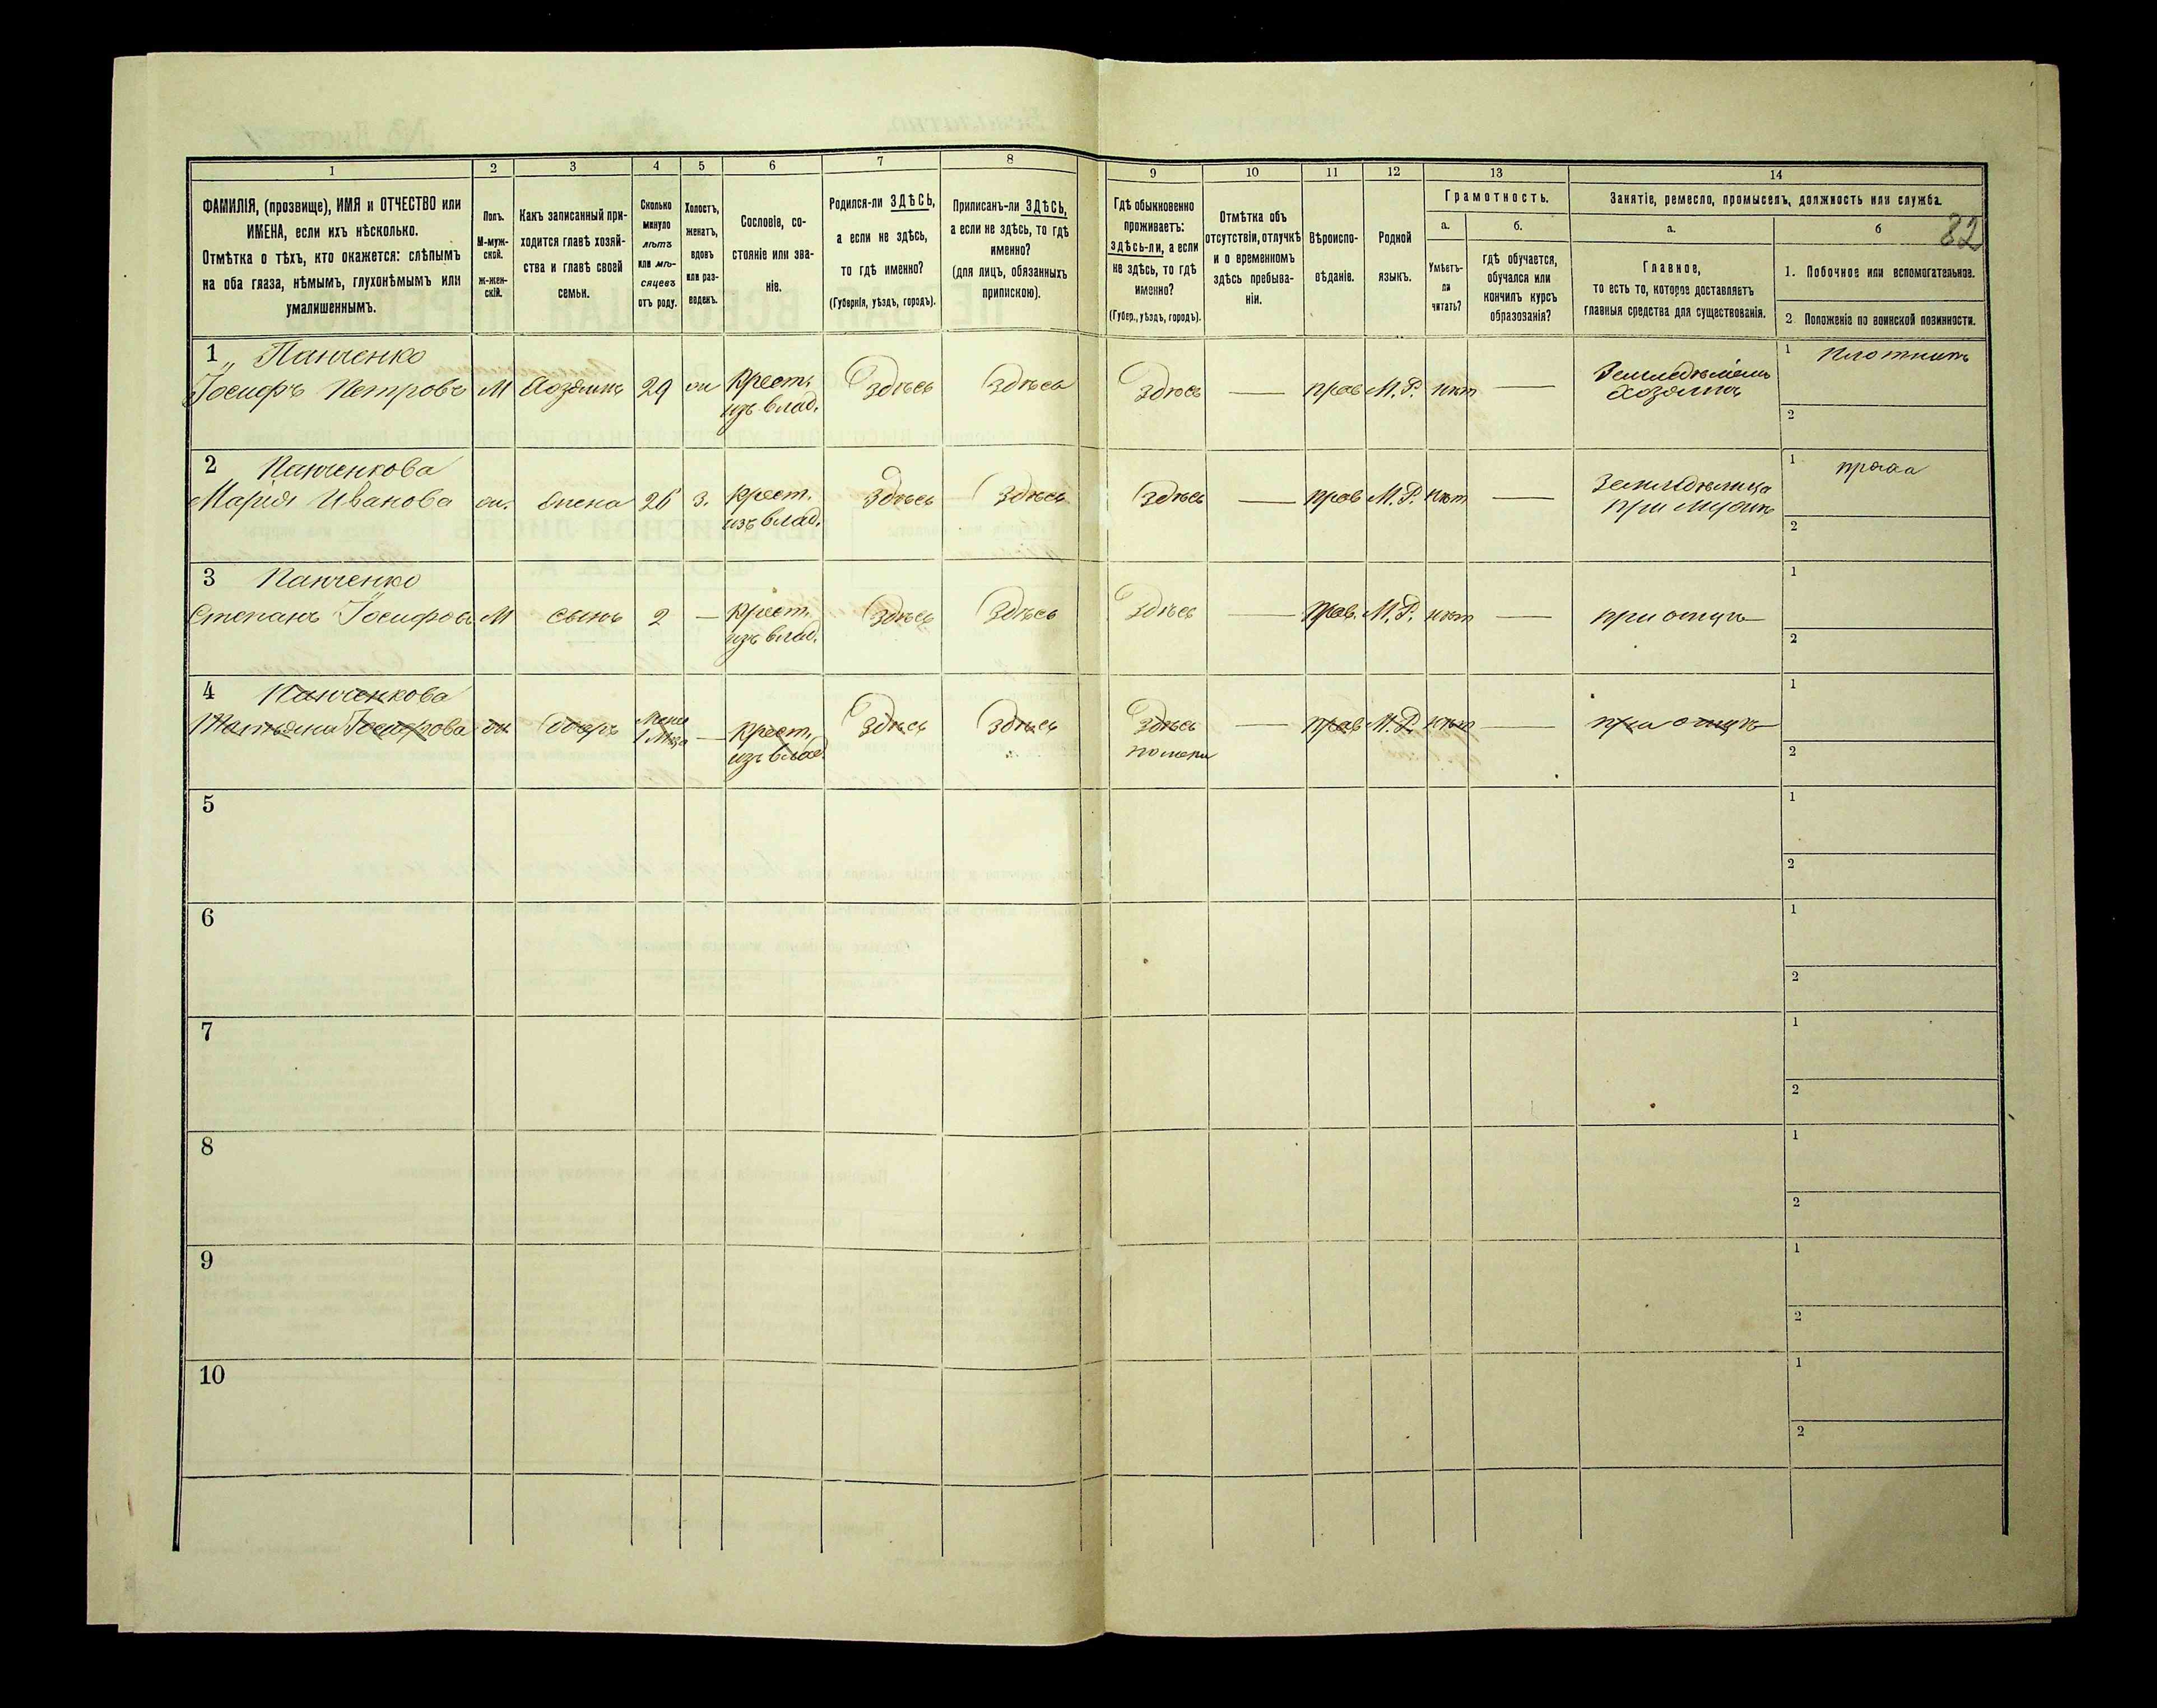 1 2 3 4 5 6 7 8 9 10 11 12 13 14
ФАМИЛІЯ, (прозвище), ИМЯ и ОТЧЕСТВО или
ИМЕНА, если ихъ нѣсколько.
Отмѣтка о тѣхъ, кто окажется: слѣпымъ
на оба глаза, нѣмымъ, глухонѣмымъ или
умалишеннымъ.
Полъ.
М-муж-
ской.
ж-жен-
скій.
Какъ записанный при-
ходится главѣ хозяй-
ства и главѣ своей
семьи.
Сколько
минуло
лѣтъ
или мѣ-
сяцевъ
отъ роду.
Холостъ,
женатъ,
вдовъ
или раз-
веденъ.
Сословіе, со-
стояніе или зва-
ніе.
Родился-ли ЗДѢСЬ,
а если не здѣсь,
то гдѣ именно?
(Губернія, уѣздъ, городъ).
Приписанъ-ли ЗДѢСЬ,
а если не здѣсь, то гдѣ
именно?
(для лицъ, обязанныхъ
припискою).
Гдѣ обыкновенно
проживаетъ:
здѣсь-ли, а если
не здѣсь, то гдѣ
именно?
(Губер., уѣздъ, городъ).
Отмѣтка объ
отсутствіи, отлучкѣ
и о временномъ
здѣсь пребыва-
ніи.
Вѣроиспо-
вѣданіе.
Родной
языкъ.
Грамотность.
а.
Умѣетъ-
ли
читать?
б.
гдѣ обучается,
обучался или
кончилъ курсъ
образованія?
Занятіе, ремесло, промыселъ, должность или служба.
82
а.
Главное,
то есть то, которое доставляетъ
главныя средства для существованія.
б
1. Побочное или вспомогательное.
2 Положеніе по воинской повинности.
1 Панченко
Іосифъ Петровъ М Хозяинъ 29 ж Крест. изъ влад. Здѣсь Здѣсь Здѣсь — прав М.Р. нѣт — Земледѣлецъ хозяинъ
1 Плотникъ
2
2 Панченкова
Марія Иванова ж. жена 26 з. Крест. изъ влад. Здѣсь Здѣсь Здѣсь — прав М.Р. нѣт — Земледѣлица при мужѣ
1 пряха
2
3 Панченко
Степанъ Іосифовъ М сынъ 2 — Крест. изъ влад. Здѣсь Здѣсь Здѣсь — прав. М.Р. нѣт — при отцѣ
1
2
4 Панченкова
Татьяна Іосифова ж дочь Менѣе 1 Мца — Крест. изъ влад. Здѣсь Здѣсь Здѣсь — прав М.Р. нѣт — при отцѣ
1
2
5 1
2
6 1
2
7 1
2
8 1
2
9 1
2
10 1
2